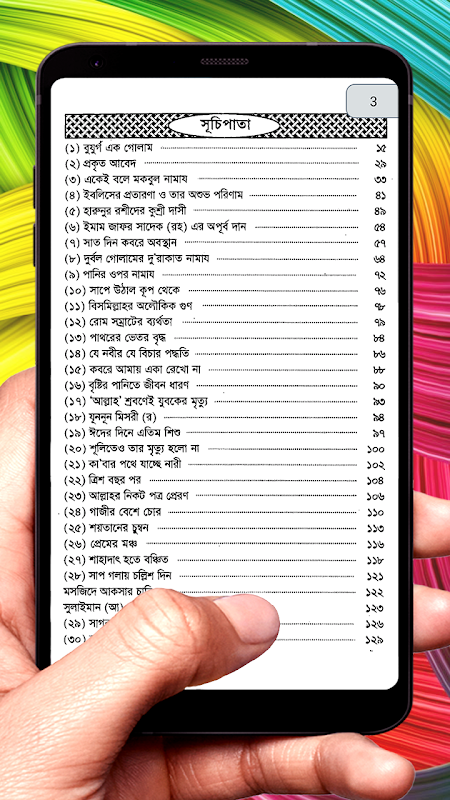 3
সূচিপাতা
(১) বুযুর্গ এক গোলাম ১৫
(২) প্রকৃত আবেদ ২৯
(৩) একেই বলে মকবুল নামায ৩৩
(৪) ইবলিসের প্রতারণা ও তার অশুভ পরিণাম ৪১
(৫) হারুনুর রশীদের কুশ্রী দাসী ৪৯
(৬) ইমাম জাফর সাদেক (রহ) এর অপূর্ব দান ৫৪
(৭) সাত দিন কবরে অবস্থান ৫৭
(৮) দুর্বল গোলামের দু'রাকাত নামায ৬৪
(৯) পানির ওপর নামায ৭২
(১০) সাপে উঠাল কূপ থেকে ৭৬
(১১) বিসমিল্লাহর অলৌকিক গুণ ৭৮
(১২) রোম সম্রাটের ব্যর্থতা ৭৯
(১৩) পাথরের ভেতর বৃদ্ধ ৮৪
(১৪) যে নবীর যে বিচার পদ্ধতি ৮৬
(১৫) কবরে আমায় একা রেখো না ৮৮
(১৬) বৃষ্টির পানিতে জীবন ধারণ ৯০
(১৭) 'আল্লাহ' শ্রবণেই যুবকের মৃত্যু ৯৩
(১৮) যুননূন মিসরী (র) ৯৪
(১৯) ঈদের দিনে এতিম শিশু ৯৭
(২০) শূলিতেও তার মৃত্যু হলো না ১০০
(২১) কা'বার পথে যাচ্ছে নারী ১০২
(২২) ত্রিশ বছর পর ১০৪
(২৩) আল্লাহর নিকট পত্র প্রেরণ ১০৬
(২৪) গাজীর বেশে চোর ১১০
(২৫) শয়তানের চুম্বন ১১৩
(২৬) প্রেমের মঞ্চ ১১৬
(২৭) শাহাদাৎ হতে বঞ্চিত ১১৮
(২৮) সাপ গলায় চল্লিশ দিন ১২১
মসজিদে আকসার ১২২
সুলাইমান (আ) ১২৩
(২৯) ১২৬
(৩০) ১২৯